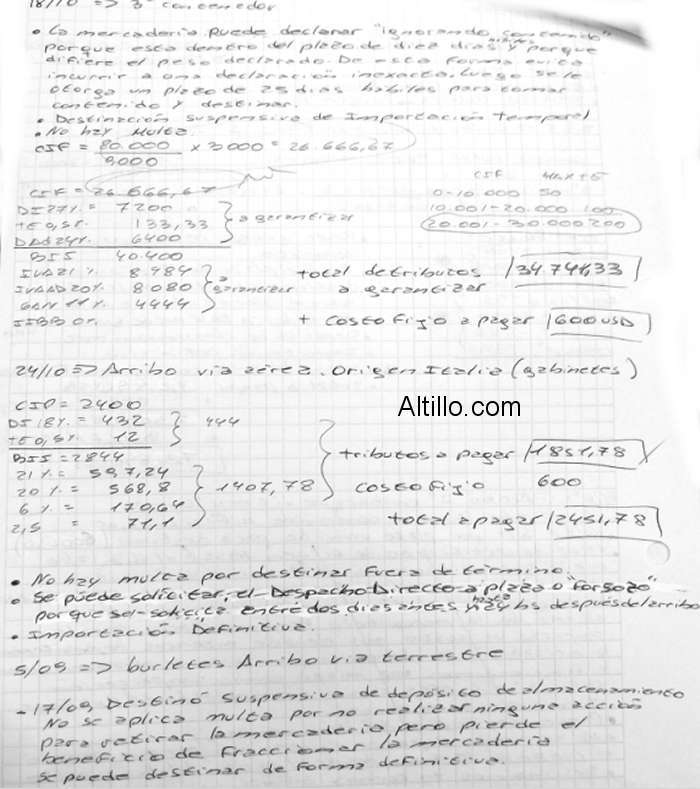 18/10 => 3° contenedor
• La mercadería puede declarar "ignorando contenido"
porque esta dentro del plazo de diez días y porque
difiere el peso declarado. De esta forma evita
incurrir a una declaración inexacta. Luego se le
otorga un plazo de 25 días hábiles para tomar
contenido y destinar.
• Destinación suspensiva de Importación temporal
• No hay Multa
CIF = 80.000 x 3000 = 26.666,67
9000
CIF MAX TE
CIF = 26.666,67
0-10.000 50
DI 27% = 7200
10.001-20.000 100
TE 0,5% 133,33 } a garantizar
20.001-30.000 200
DAD 24% 6400
BIS 40.400
IVA 21% 8.484
IVA AD 20% 8080 } a garantizar
GAN 11% 4444
IIBB 0%
total de tributos a garantizar 34.741,33
+ costo fijo a pagar 600 USD
24/10 => Arribo via aérea. Origen Italia (gabinetes)
CIP = 2400
Altillo.com
DI 18% = 432 } 444
TE 0,5% 12
BIS = 2844
tributos a pagar 1851,78
21% = 597,24
20% = 568,8 } 1407,78
costo fijo 600
6% = 170,64
2,5 = 71,1
total a pagar 2451,78
• No hay multa por destinar fuera de término.
• Se puede solicitar el Despacho Directo a plaza o "forsozo"
porque se solicita entre dos dias antes y hasta 24 hs después del arribo
• Importación Definitiva.
5/09 => burletes Arribo via terrestre
- 17/09 Destinó suspensiva de depósito de almacenamiento
No se aplica multa por no realizar ninguna acción
para retirar la mercadería pero pierde el
beneficio de fraccionar la mercadería
se puede destinar de forma definitiva.